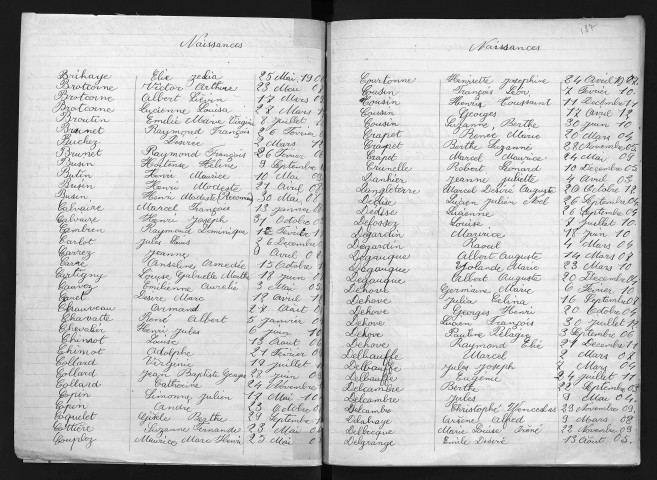 Naissances
Brihaye Elie 25 Mai 19
Brotcorne Victor Arthur 23 Mai
Brotcorne Albert 17 Mars 08
Brotcorne Lucienne Louisa 28 Mars
Broutin Emilie Marie 8 Juillet
Brunet Raymond François 26 Février
Buchez Désirée Mars
Brunet Raymond François 26 Février 08
Busin Hortense 9 Septembre
Butin Henri Maurice 10 Mai 09
Busin Henri Modeste 21 Avril 08
Busin Henri Modeste 30 Mai 08
Calvaire Marcel François 13 Janvier
Calvaire Henri Joseph 31 Octobre
Cambien Raymond Dominique Février
Carlot Jules Louis 26 Décembre
Carrez Jeanne 9 Avril 08
Carré Anselme Amédée 15 Octobre
Cartigny Louise Gabrielle 18 Juin
Cauvez Emilienne Aurélie 3 Mai 05
Cauet Désiré Marc 12 Avril
Chauveau Armand 28 Août
Charvatte René Albert 5 Janvier
Chevalier Henri Jules 6 Juin 10
Chinsot Louise 13 Août 06
Chimot Adolphe 21 Février
Collard Virginie 19 Juillet
Collard Jean Baptiste Georges 22 Juin
Collard Catherine 24 Novembre
Copin Simonne, Julien 12 Mai 10
Copin André 23 Octobre
Coquelet Gisèle Berthe 29 Septembre
Cottière Suzanne Fernande 23 Mai
Couplez Maurice Marc Henri 25 Mai
187
Naissances
Courtonne Henriette Joséphine 24 Avril 1902
Cousin François Léon 7 Février 10
Cousin Henri Toussaint 11 Décembre 11
Cousin Georges 17 Avril 12
Cousin Suzanne, Berthe 30 Juin 10
Crapet Renée Marie 20 Mars 04
Crapet Berthe Suzanne 28 Novembre 05
Crapet Marcel Maurice 24 Mai 08
Crunelle Robert Léonard 10 Décembre 05
Danhier Jeanne Juliette 4 Avril 05
Dangleterre Marcel Désiré Auguste 20 Octobre 12
Dedise Lucien Julien Noël 26 Septembre 04
Dedise Suzanne 26 Septembre 04
Defossez Louise 8 Juillet 10
Degardin Maurice 18 Juin 10
Degardin Raoul 4 Mars 04
Degauque Albert Auguste 14 Mars 08
Degauque Yolande Marie 23 Mars 10
Degauque Albert Auguste 20 Décembre 04
Dehove Germaine Marie 6 Février 10
Dehove Julia Célina 16 Septembre 08
Dehove Georges Henri 20 Octobre 04
Dehove Lucien François 30 Juillet 12
Dehove Pauline Pélagie 3 Septembre 06
Dehove Raymond Elie 27 Décembre 11
Delbauffe Marcel 2 Mars 08
Delbauffe Jules Joseph 2 Mars 04
Delbauffe Eugène 24 Juillet 10
Delcambre Berthe 22 Septembre 03
Delcambre Jules 9 Mai 04
Delcambe Christophe Wenceslas 29 Novembre 09
Delahaye Arsène Alfred 9 Mars 08
Delbecque Marie Louise Irène 22 Novembre 09
Delgrange Emile Désiré 13 Août 05